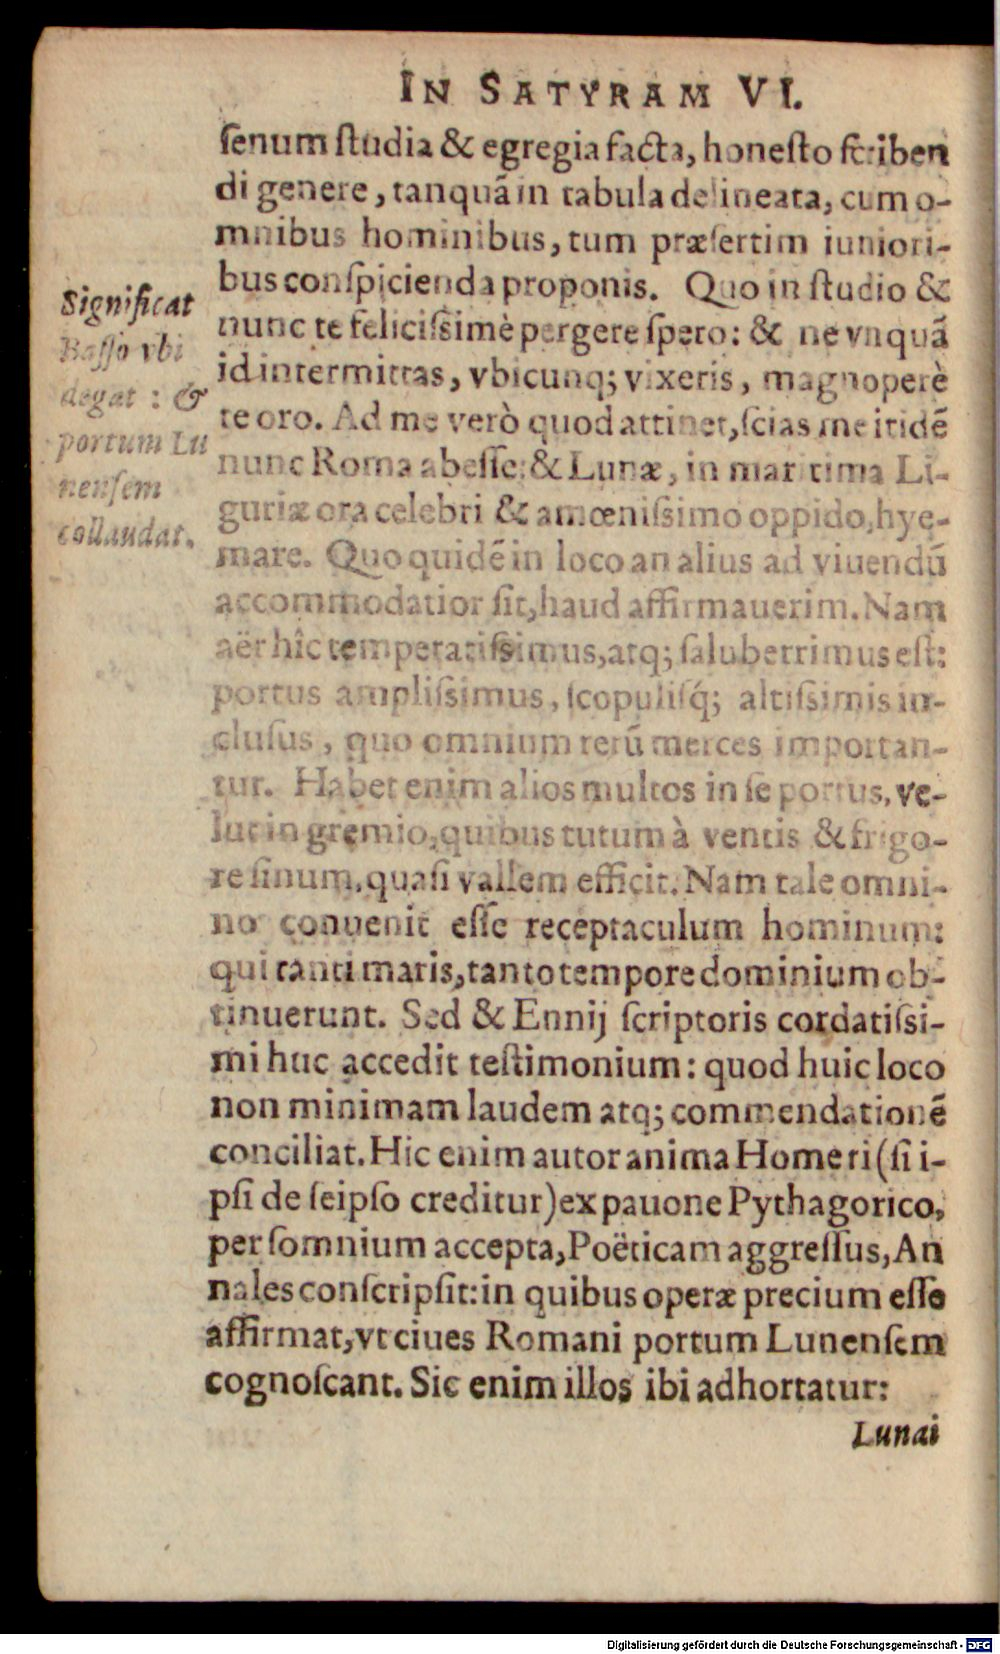 IN SATYRAM VI.
ſenum ſtudia & egregia facta, honeſto ſcriben
di genere, tanquã in tabula delineata, cum o-
mnibus hominibus, tum præſertim iuniori-
bus conſpicienda proponis. Quo in ſtudio &
nunc te feliciſsimè pergere ſpero: & ne vnquã
id intermittas, vbicunq; vixeris, magnoperè
te oro. Ad me verò quod attinet, ſcias me itidẽ
nunc Roma abeſſe: & Lunæ, in maritima Li-
guriæ ora celebri & amœniſsimo oppido, hye-
mare. Quo quidẽ in loco an alius ad viuendũ
accommodatior ſit, haud affirmauerim. Nam
aër hîc temperatiſsimus, atq; ſaluberrimus eſt:
portus ampliſsimus, ſcopuliſq́; altiſsimis in-
cluſus, quo omnium rerũ merces importan-
tur. Habet enim alios multos in ſe portus, ve-
lut in gremio, quibus tutum à ventis & frigo-
re ſinum, quaſi vallem efficit. Nam tale omni-
no conuenit eſſe receptaculum hominum:
qui tanti maris, tanto tempore dominium ob-
tinuerunt. Sed & Ennij ſcriptoris cordatiſsi-
mi huc accedit teſtimonium: quod huic loco
non minimam laudem atq; commendationẽ
conciliat. Hic enim autor anima Homeri (ſi i-
pſi de ſeipſo creditur) ex pauone Pythagorico,
per ſomnium accepta, Poëticam aggreſſus, An
nales conſcripſit: in quibus operæ precium eſſe
affirmat, vt ciues Romani portum Lunenſem
cognoſcant. Sic enim illos ibi adhortatur:
Lunai
Significat
Baſſo vbi
degat: &
portum Lu
nenſem
collaudat.
Digitalisierung gefördert durch die Deutsche Forschungsgemeinschaft - DFG